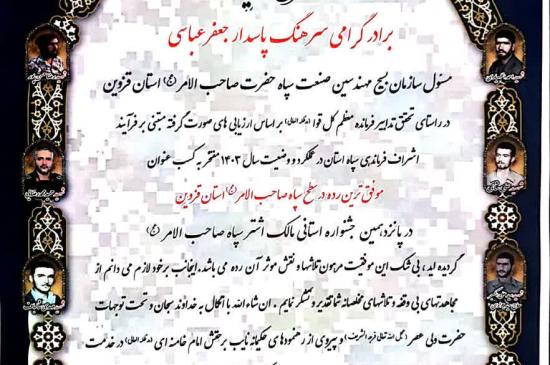 برادر گرامی سرهنگ پاسدار جعفر عباسی
مسئول سازمان بسیج مهندسین صنعت سپاه حضرت صاحب الامر (عج) استان قزوین
در راستای تحقق تدابیر فرمانده معظم کل قوا (مدظله العالی) بر اساس ارزیابی های صورت گرفته مبتنی بر فرآیند
اشراف فرماندهی سپاه استان در عملکرد و وضعیت سال ۱۴۰۳ مفتخر به کسب عنوان
موفق ترین رده در سطح سپاه صاحب الامر (عج) استان قزوین
در پانزدهمین جشنواره استانی مالک اشتر سپاه صاحب الامر (عج)
گردیده اید، بی شک این موفقیت مرهون تلاشها و نقش موثر آن رده می باشد. اینجانب بر خود لازم می دانم از
مجاهدتهای بی وقفه و تلاشهای مخلصانه شما تقدیر و تشکر نمایم. ان شاءالله با اتکال به خداوند سبحان و تحت توجهات
حضرت ولی عصر (عجل الله تعالی فرجه الشریف) و پیروی از رهنمودهای حکیمانه نایب برحقش امام خامنه ای (مدظله العالی) در خدمت